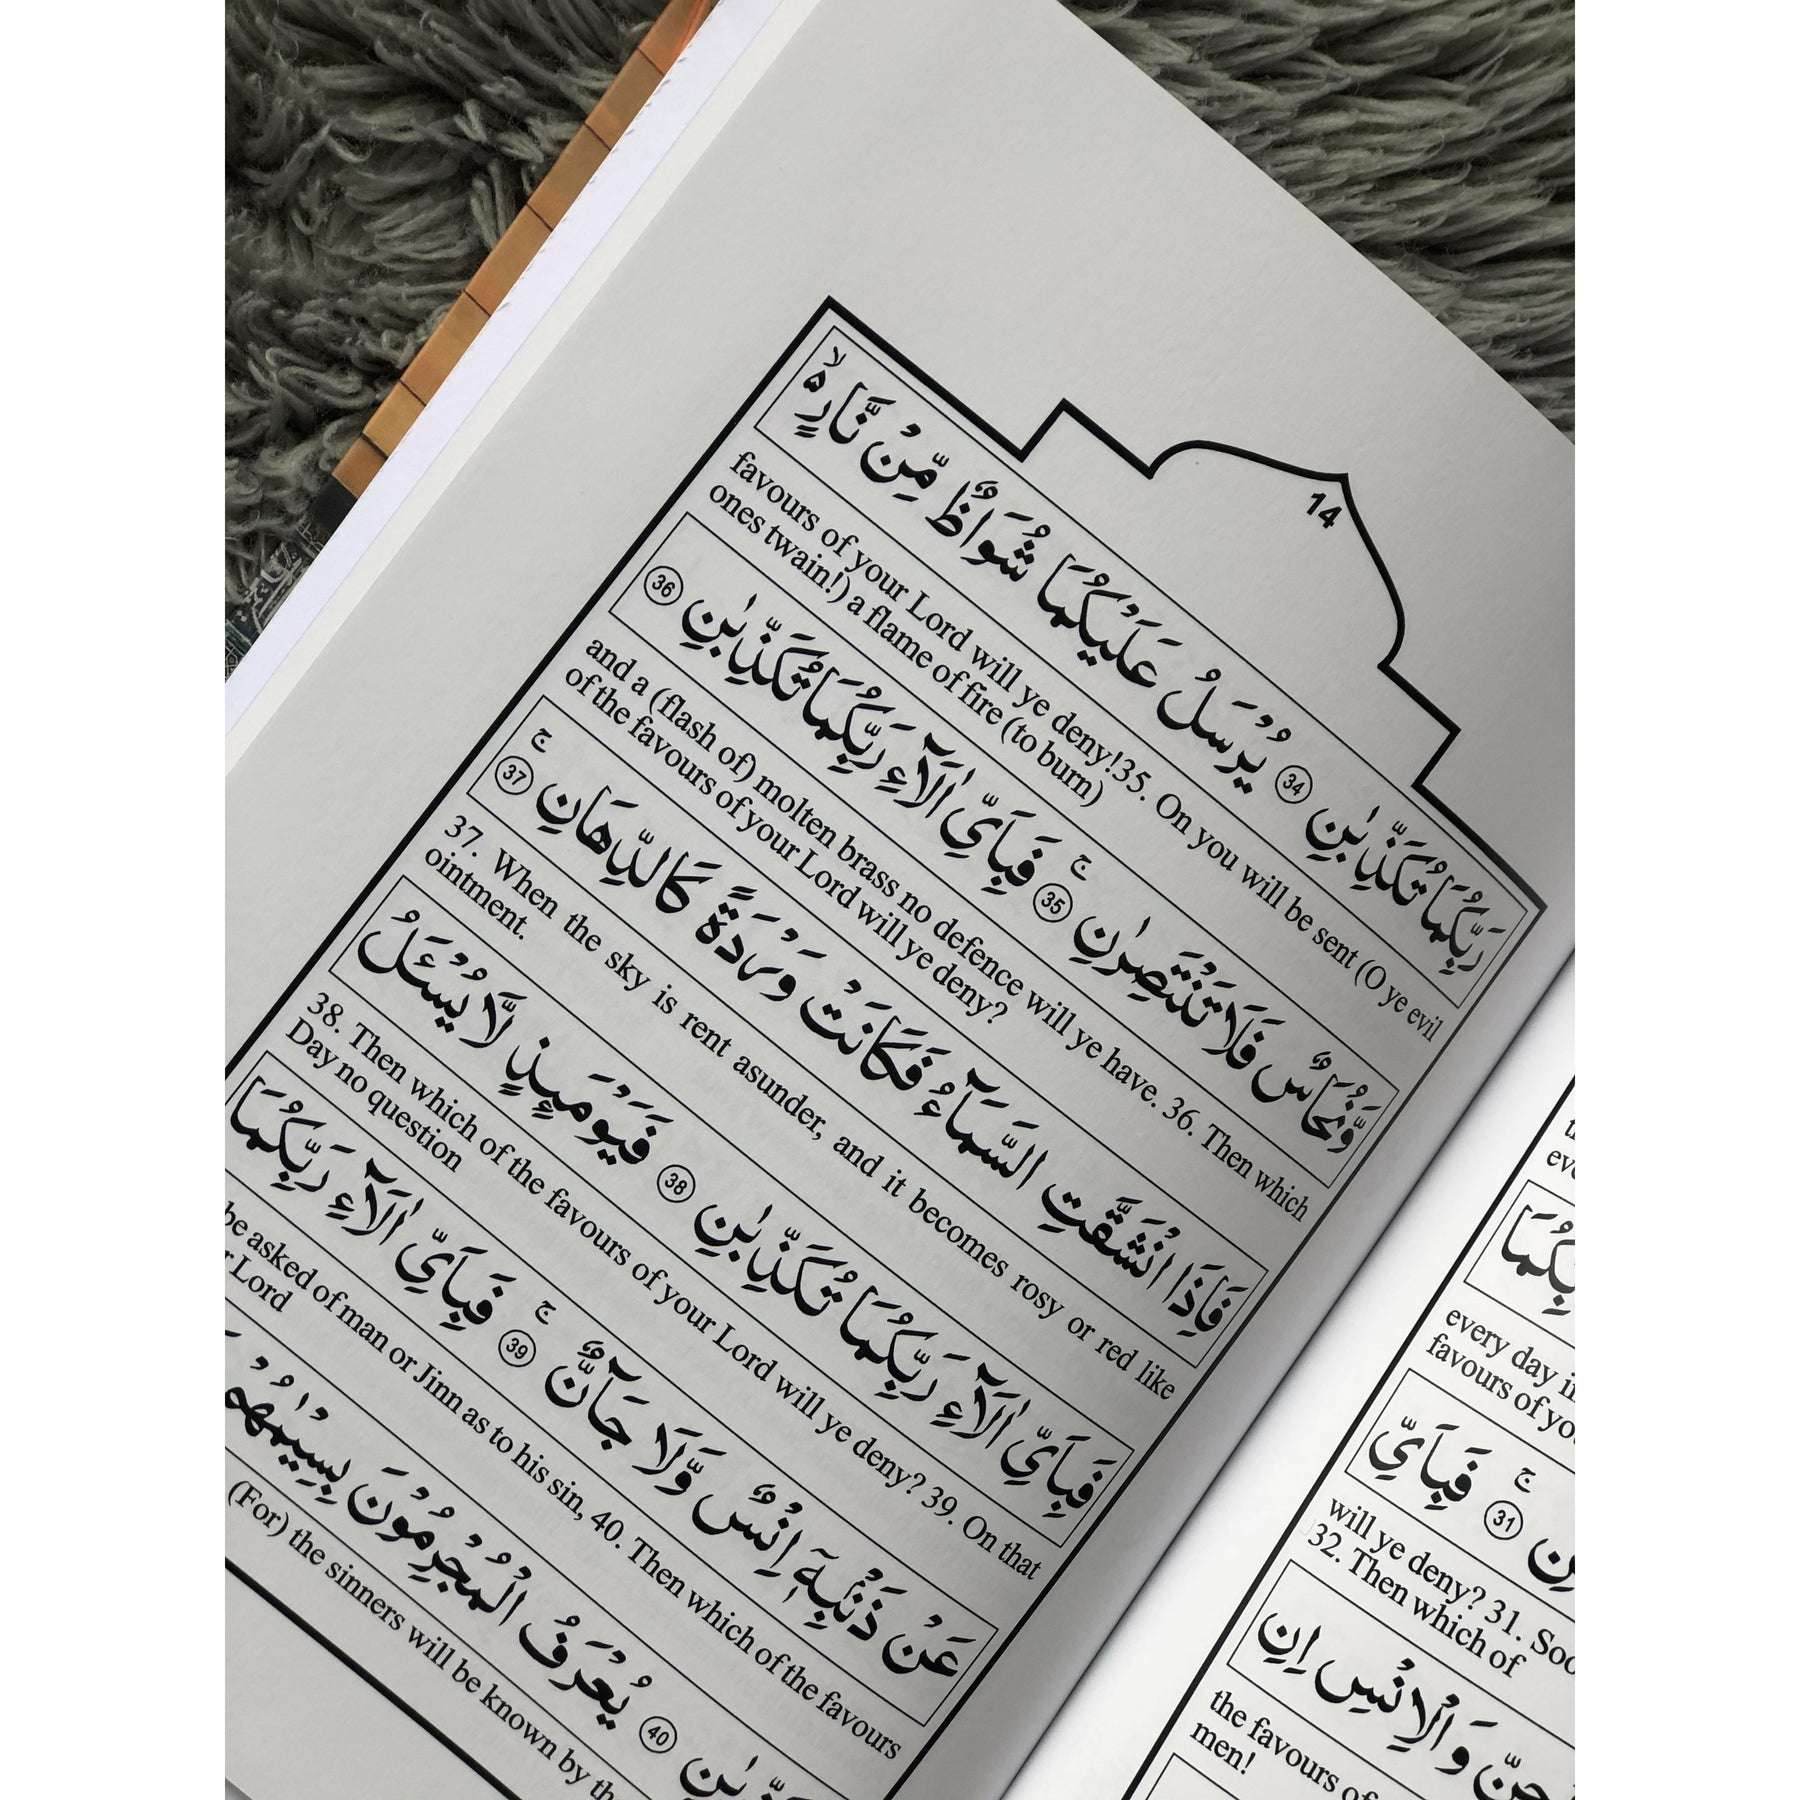 14
رَبِّكُمَا تُكَذِّبٰنِ ﴿34﴾ يُرْسَلُ عَلَيْكُمَا شُوَاظٌ مِّنْ نَّارٍ ۙ
favours of your Lord will ye deny!35. On you will be sent (O ye evil
ones twain!) a flame of fire (to burn)
وَّنُحَاسٌ فَلَا تَنْتَصِرٰنِ ۚ ﴿35﴾ فَبِاَيِّ اٰلَآءِ رَبِّكُمَا تُكَذِّبٰنِ ﴿36﴾
and a (flash of) molten brass no defence will ye have. 36. Then which
of the favours of your Lord will ye deny?
فَاِذَا انْشَقَّتِ السَّمَآءُ فَكَانَتْ وَرْدَةً كَالدِّهَانِ ۚ ﴿37﴾
37. When the sky is rent asunder, and it becomes rosy or red like
ointment.
فَبِاَيِّ اٰلَآءِ رَبِّكُمَا تُكَذِّبٰنِ ﴿38﴾ فَيَوْمَىِٕذٍ لَّا يُسْـَٔلُ
38. Then which of the favours of your Lord will ye deny? 39. On that
Day no question
عَنْ ذَنْۢبِهٖٓ اِنْسٌ وَّلَا جَآنٌّ ۚ ﴿39﴾ فَبِاَيِّ اٰلَآءِ رَبِّكُمَا
be asked of man or Jinn as to his sin, 40. Then which of the favours
Lord
﴿40﴾ يُعْرَفُ الْمُجْرِمُوْنَ بِسِيْمٰهُمْ
(For) the sinners will be known by
every day
favours of
فَبِاَيِّ ۚ ﴿31﴾
will ye deny? 31.
32. Then which of
وَالْاِنْسِ اِنِ
the favours of
men!